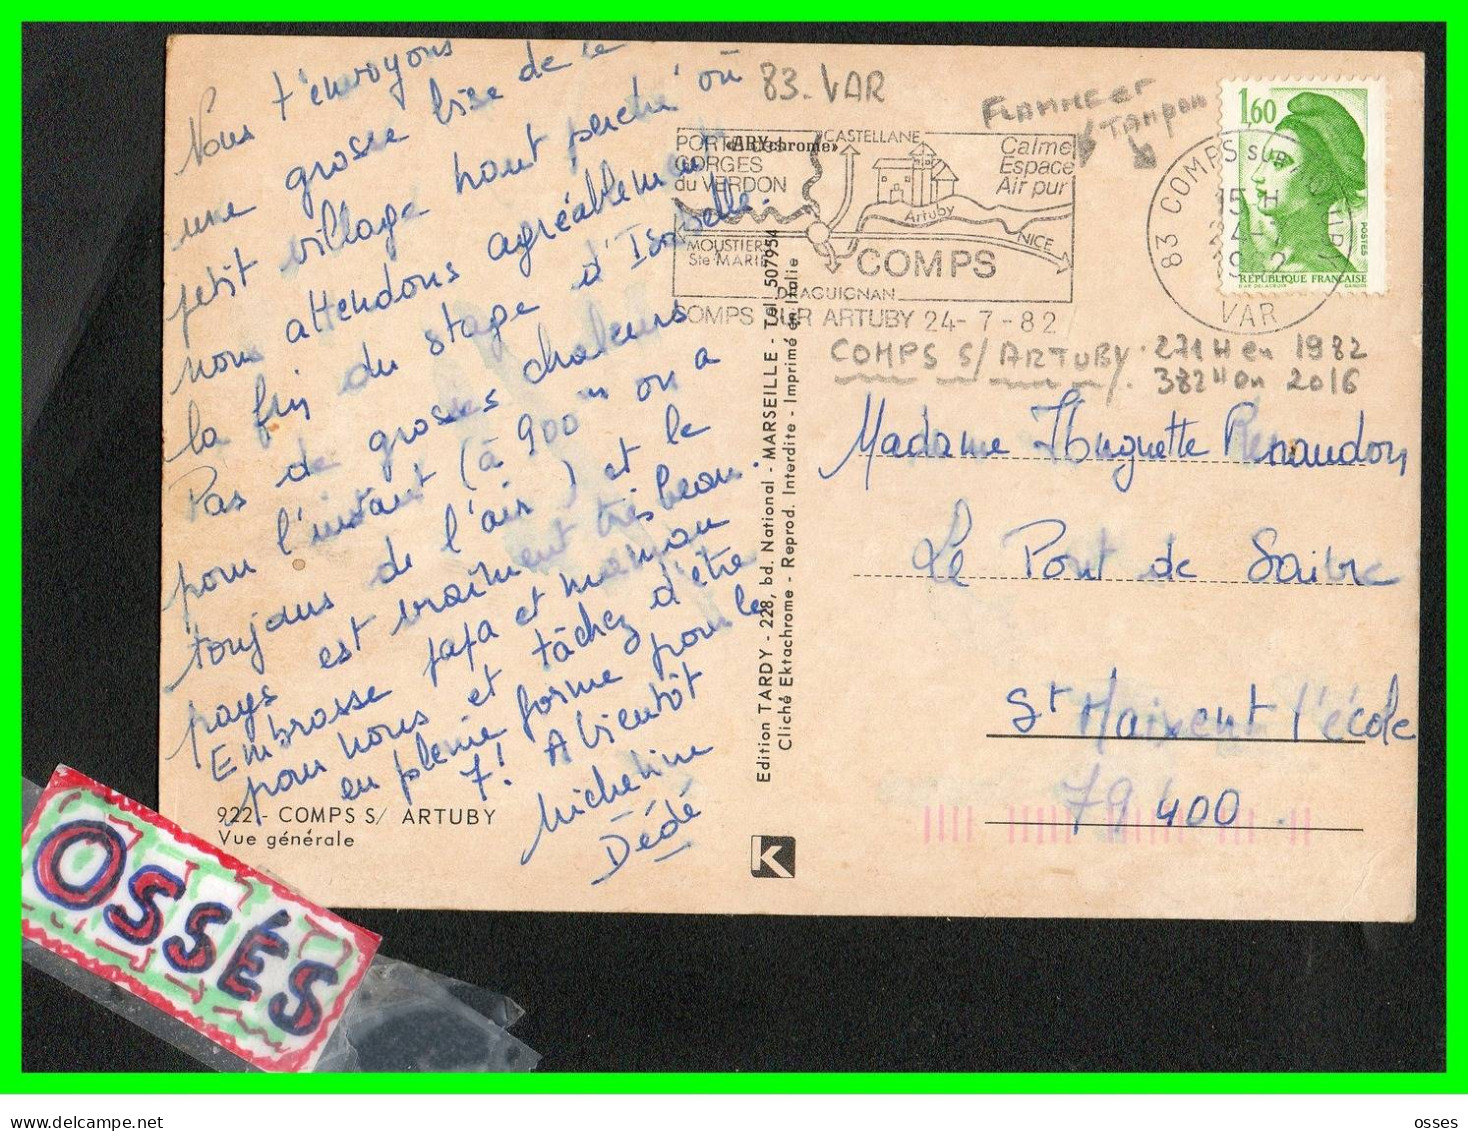 Nous t'envoyons
une grosse bise de ce
petit village haut perché où
nous attendons agréablement
la fin du stage d'Isabelle.
Pas de grosses chaleurs
pour l'instant (à 900 m on a
toujours de l'air) et le
pays est vraiment très beau.
Embrasse papa et maman
pour nous et tâchez d'être
en pleine forme pour le
7! A bientôt
Micheline
Dédé
922 - COMPS S/ ARTUBY
Vue générale
Edition TARDY - 228, bd. National - MARSEILLE - Tel. 507954
Cliché Ektachrome - Reprod. Interdite - Imprimé en Italie
K
83. VAR
FLAMME et
TAMPON
«ARYchrome»
GORGES
du VERDON
CASTELLANE
Calme
Espace
Air pur
Artuby
NICE
MOUSTIERS
Ste MARIE
COMPS
DRAGUIGNAN
COMPS SUR ARTUBY 24-7-82
83 COMPS SUR ARTUBY
15 H
24-7
1982
VAR
1,60
POSTES
RÉPUBLIQUE FRANÇAISE
COMPS S/ ARTUBY. 271 H en 1982
382 H en 2016
Madame Huguette Renaudon
Le Pont de Saivre
St Maixent l'école
79 400
OSSÉS
osses